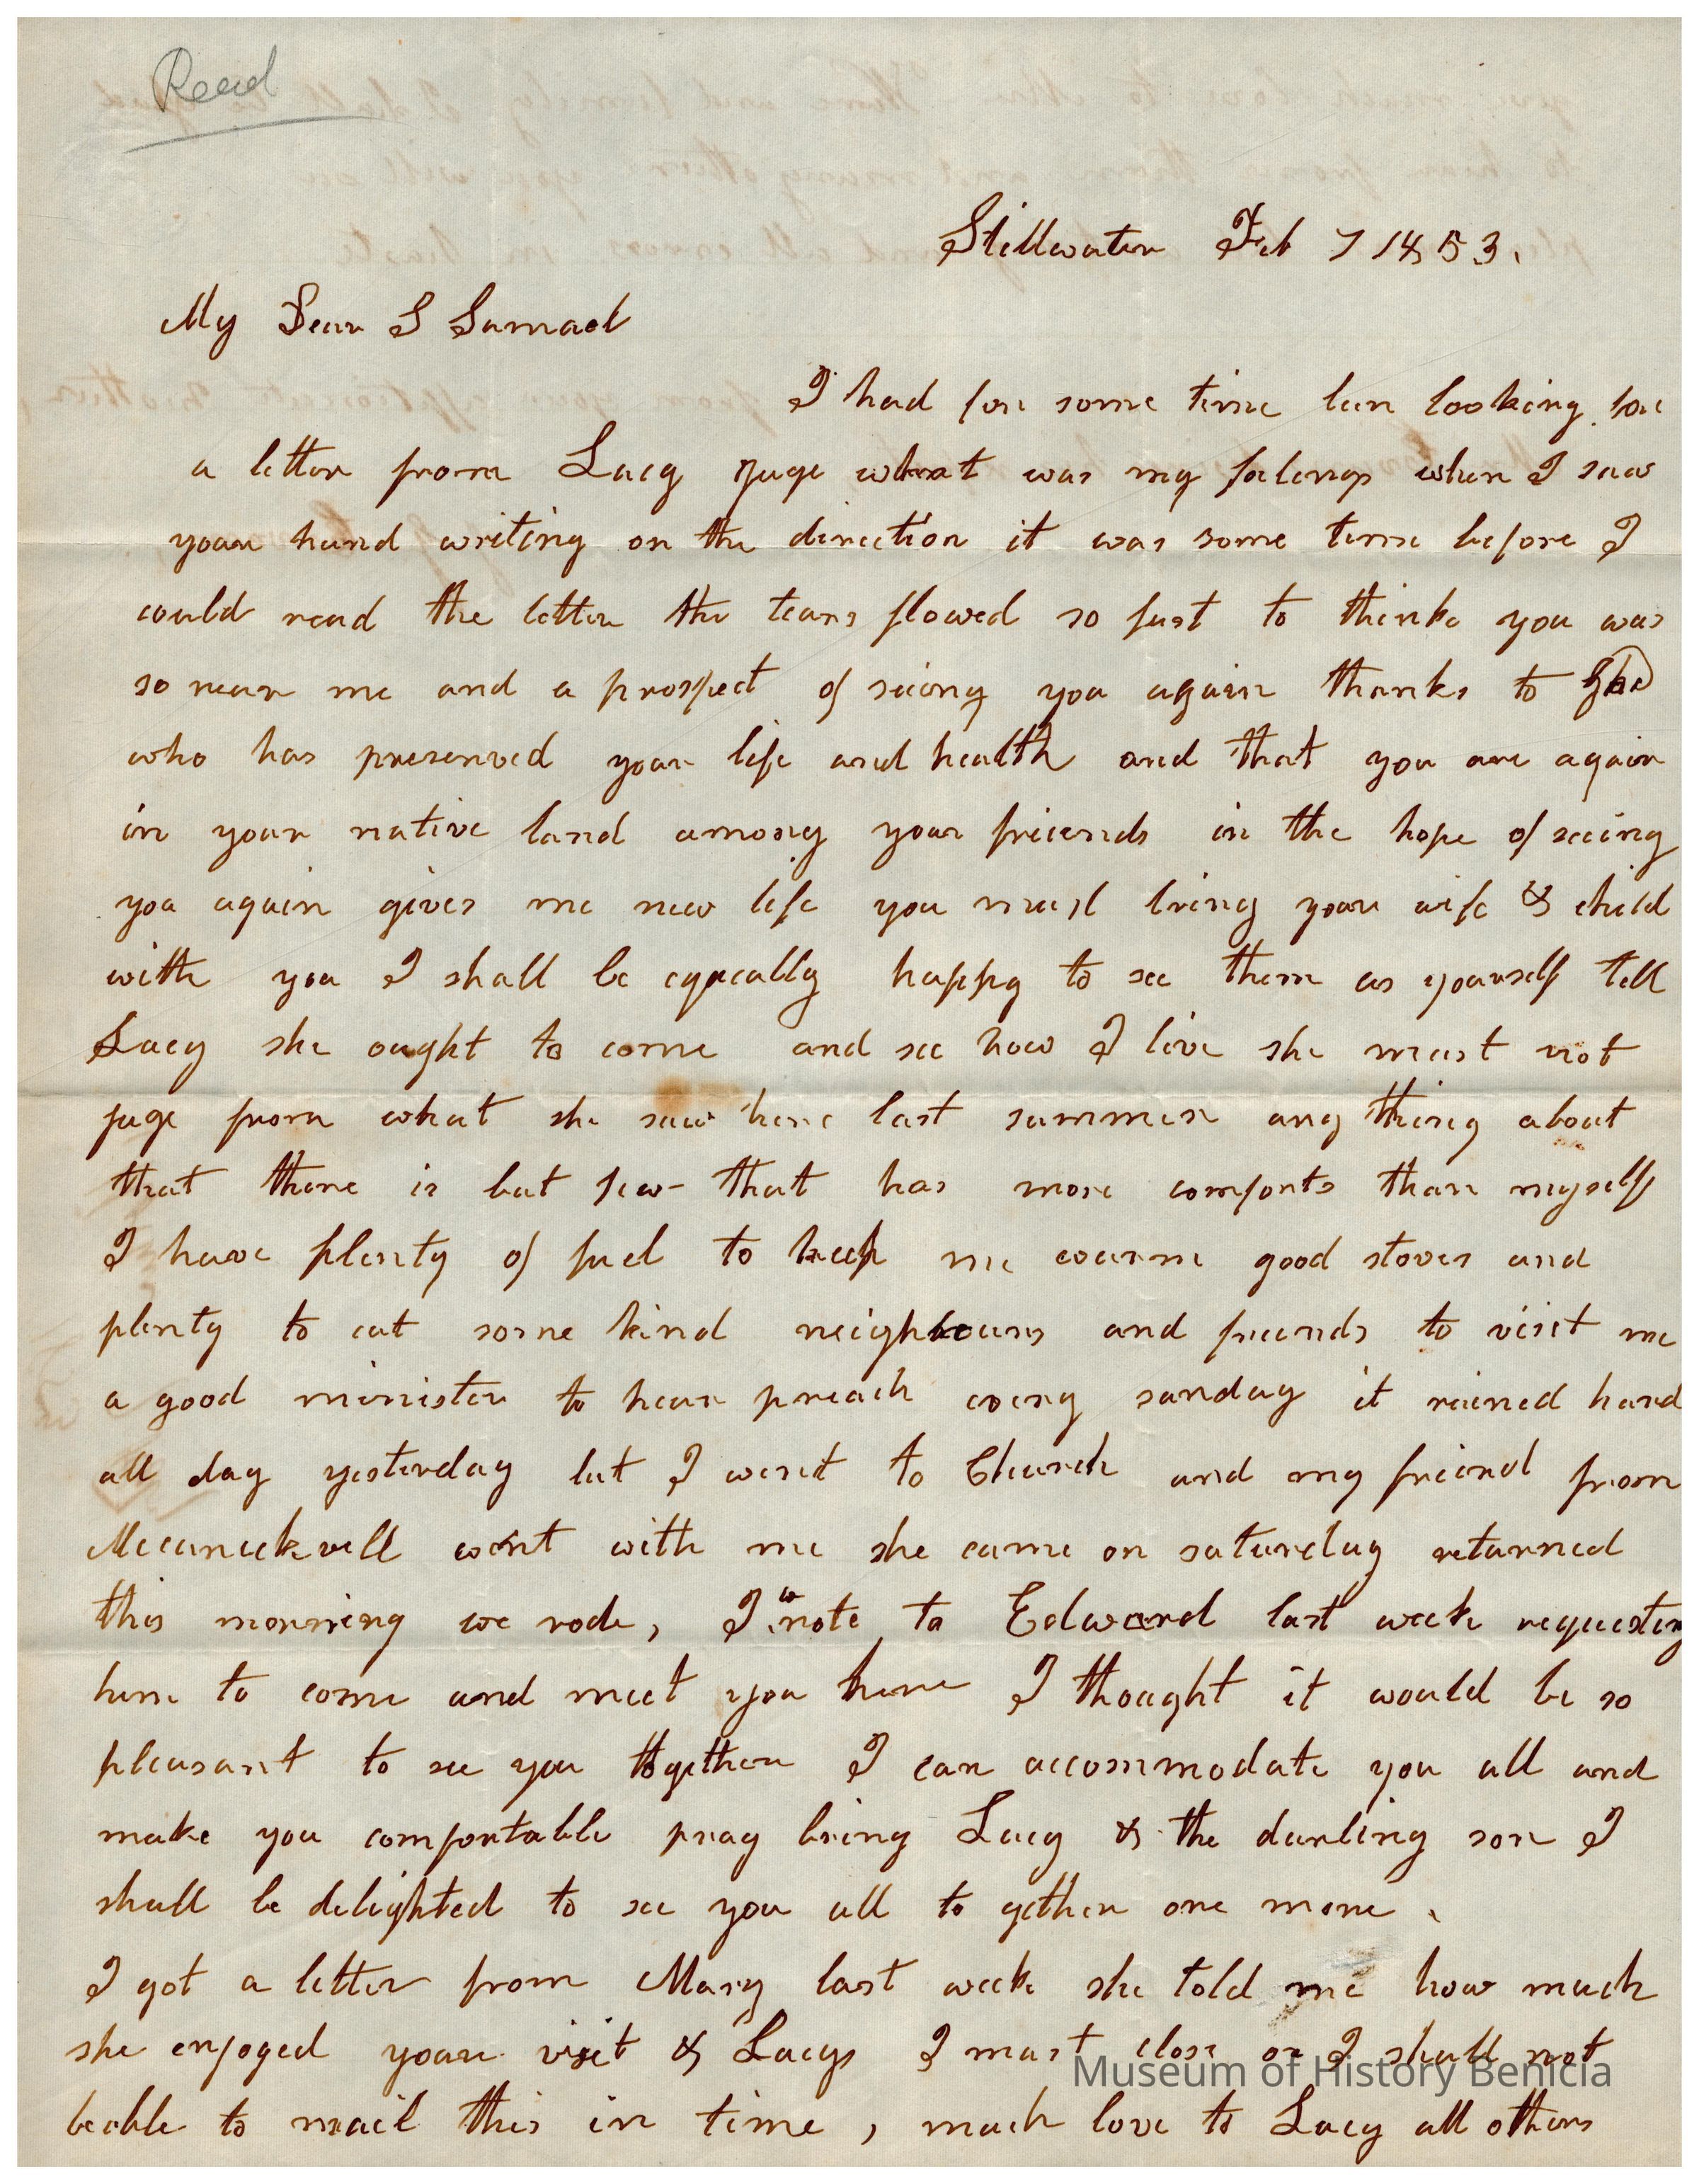 Read
Stillwater Feb 7 1853.
My Dear S Samael
I had for some time ben looking for
a letter from Lucy juge what was my felings when I saw
your hand writing on the direction it was some time before I
could read the letter the tears flowed so fast to thinke you was
so near me and a prospect of seiong you again thanks to God
who has preserved your life and health and that you are again
in your native land among your friends in the hope of seeing
you again gives me new life you must bring your wife & child
with you I shall be equeally happy to see them as yourself tell
Lucy she ought to come and see how I live she must not
juge from what she saw here last summer any thing about
that there is but few that has more comforts than myself
I have plenty of fuel to keep me warm good stoves and
plenty to eat some kind neighbours and friends to visit me
a good minister to hear preach every sunday it rained hard
all day yesterday but I went to Church and my friend from
Mecaneckvell went with me she came on saturday returned
this morning we rode, I wrote to Edward last week requesting
him to come and meet you here I thought it would be so
pleasant to see you together I can accommodate you all and
make you comfortable pray bring Lucy & the darling son I
shall be delighted to see you all to gether one more.
I got a letter from Mary last week she told me how much
she enjoyed your visit & Lucys I must close or I shall not
beable to mail this in time, much love to Lucy all others
Museum of History Benicia